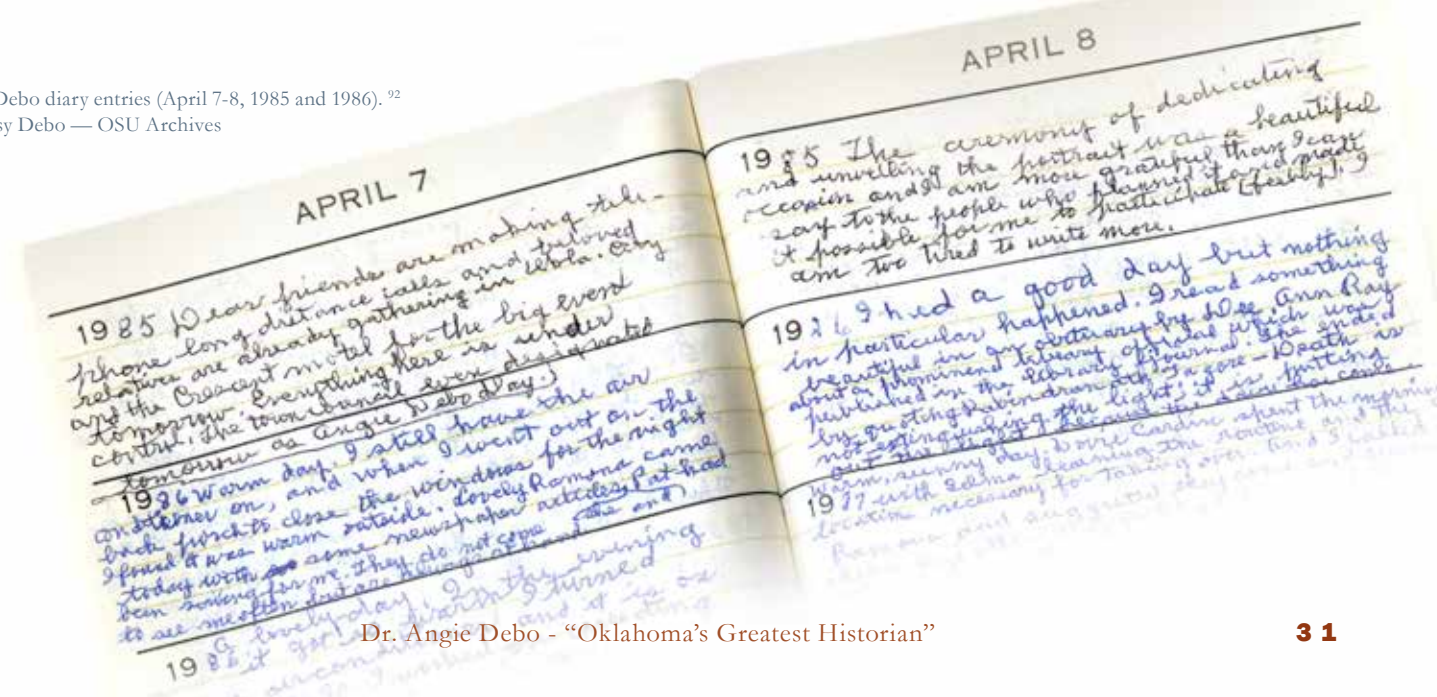 Debo diary entries (April 7-8, 1985 and 1986). 92
sy Debo — OSU Archives
APRIL 7
1985 Dear friends are making tele-
phone long distance calls and beloved
relatives are already gathering in Okla. City
and the Crescent motel for the big event
tomorrow. Everything here is under
control, (The town council even designated
tomorrow as Angie Debo Day.)
1986 Warm day. I still have the air
conditioner on, and when I went out on the
back porch to close the windows for the night
I found it was warm outside. Lovely Ramona came
today with some newspaper articles Pat had
been saving for me. They do not come (she and)
to see me often but are always
19 a lovely day. In the evening
it got warm I turned
and it is
APRIL 8
1985 The ceremony of dedicating
and unveiling the portrait was a beautiful
occasion and I am more grateful than I can
say to the people who planned it and made
it possible for me to participate (feebly). I
am too tired to write more.
1986 I had a good day but nothing
in particular happened. I read something
beautiful in an obituary by Dee Ann Ray
about a prominent library official which was
published in the library journal. She ended
by quoting Rabindranath Tagore – Death is
not extinguishing the light; it is putting
out the because the has come
warm, sunny day. spent the morning
1987 with Edema learning the routine and the
location necessary for taking over. and I called
Ramona and they
Dr. Angie Debo - “Oklahoma’s Greatest Historian”
31